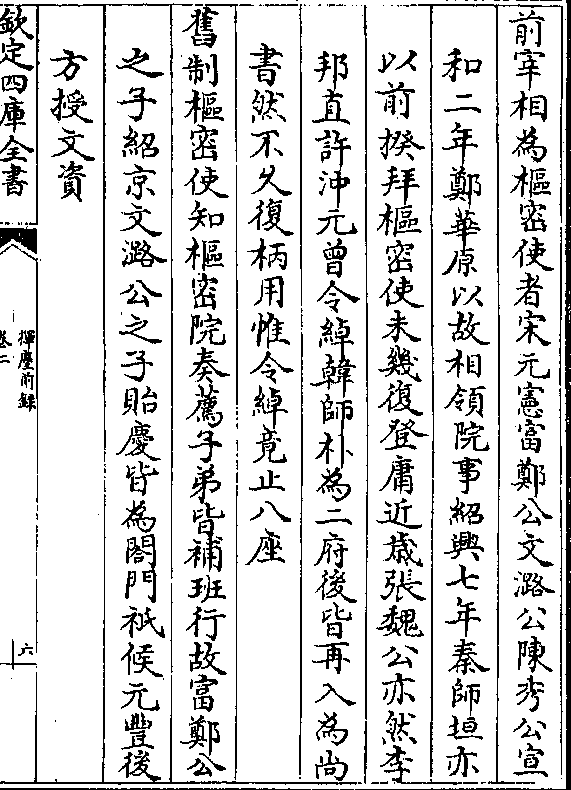 前宰相為樞密使者宋元憲富鄭公文潞公陳秀公宣
和二年鄭華原以故相領院事紹興七年秦師垣亦
以前揆拜樞密使未幾復登庸近歲張魏公亦然李
邦直許沖元曾令綽韓師朴為二府後皆再入為尚
書然不久復柄用惟令綽竟止八座
舊制樞密使知樞密院奏薦子弟皆補班行故富鄭公
之子紹京文潞公之子貽慶皆為閤門祗候元豐後
方授文資
欽定四庫全書
揮麈前錄
卷二
六